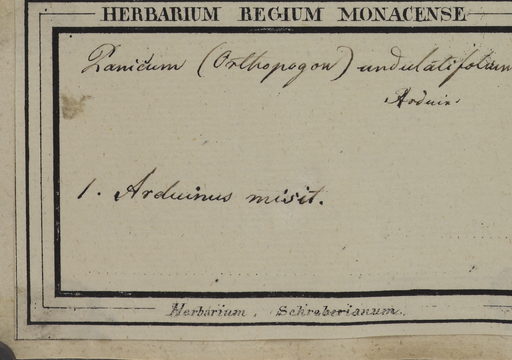 HERBARIUM REGIUM MONACENSE
Panicum (Orthopogon) undulatifolium
Arduin.
1. Arduinus misit.
Herbarium Schreberianum.